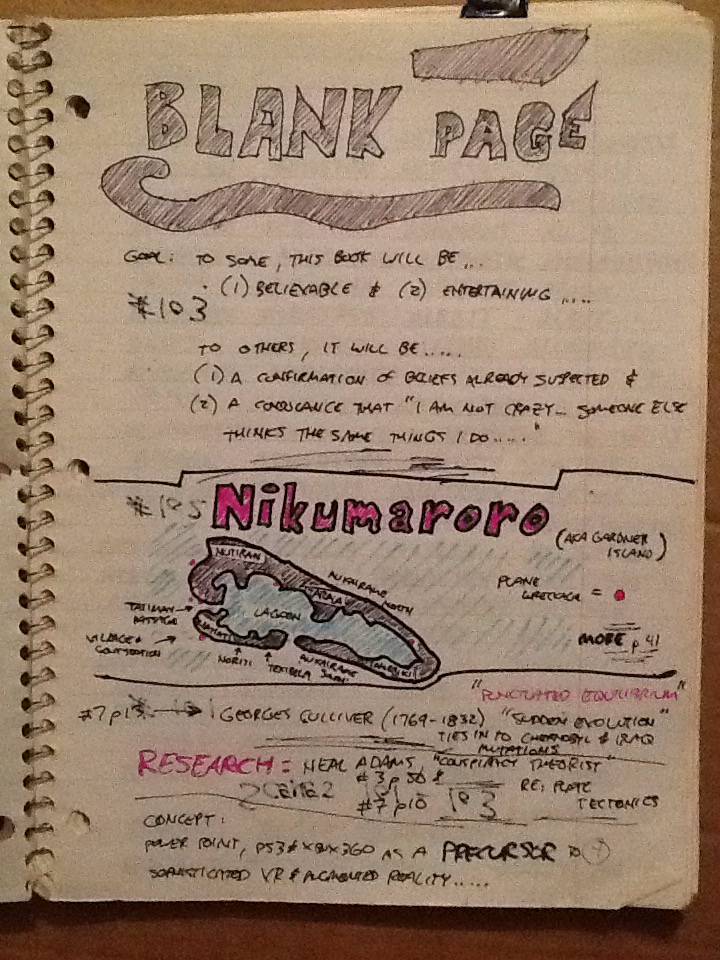 BLANK PAGE
GOAL: TO SOME, THIS BOOK WILL BE...
(1) BELIEVABLE & (2) ENTERTAINING.....
#103
TO OTHERS, IT WILL BE.....
(1) A CONFIRMATION OF BELIEFS ALREADY SUSPECTED &
(2) A THAT "I AM NOT CRAZY... SOMEONE ELSE
THINKS THE SAME THINGS I DO....."
#105
Nikumaroro
(AKA GARDNER
ISLAND)
NUTIRAN
AUKARAME NORTH
LAGOON
PLANE
WRECKAGE =
TATIMAN
PASSAGE
VILLAGE &
NORITI
MORE p 41
"PUNCTUATED EQUILIBRIUM"
#7 p13 GEORGES CULLIVER (1769-1832) "SUDDEN EVOLUTION"
TIES IN TO CHERNOBYL & IRAQ
MUTATIONS
RESEARCH = NEAL ADAMS, "CONSPIRACY THEORIST"
#3 p 56 &
#7 p10 103
RE: PLATE
TECTONICS
CONCEPT:
POWER POINT, PS3 & XBOX360 AS A PRECURSOR TO
SOPHISTICATED VR & AUGMENTED REALITY.....